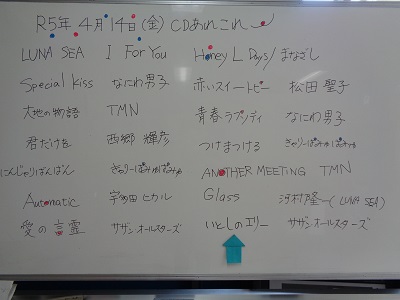 R5年 4月14日(金) CDあれこれ
LUNA SEA I For You Honey L Days/まなざし
Special Kiss なにわ男子 赤いスイートピー 松田 聖子
大地の物語 TMN 青春ラプソディ なにわ男子
君だけを 西郷 輝彦 つけまつける きゃりーぱみゅぱみゅ
にんじゃりばんばん きゃりーぱみゅぱみゅ ANOTHER MEETING TMN
Automatic 宇多田 ヒカル Glass 河村隆一(LUNA SEA)
愛の言霊 サザンオールスターズ いとしのエリー サザンオールスターズ